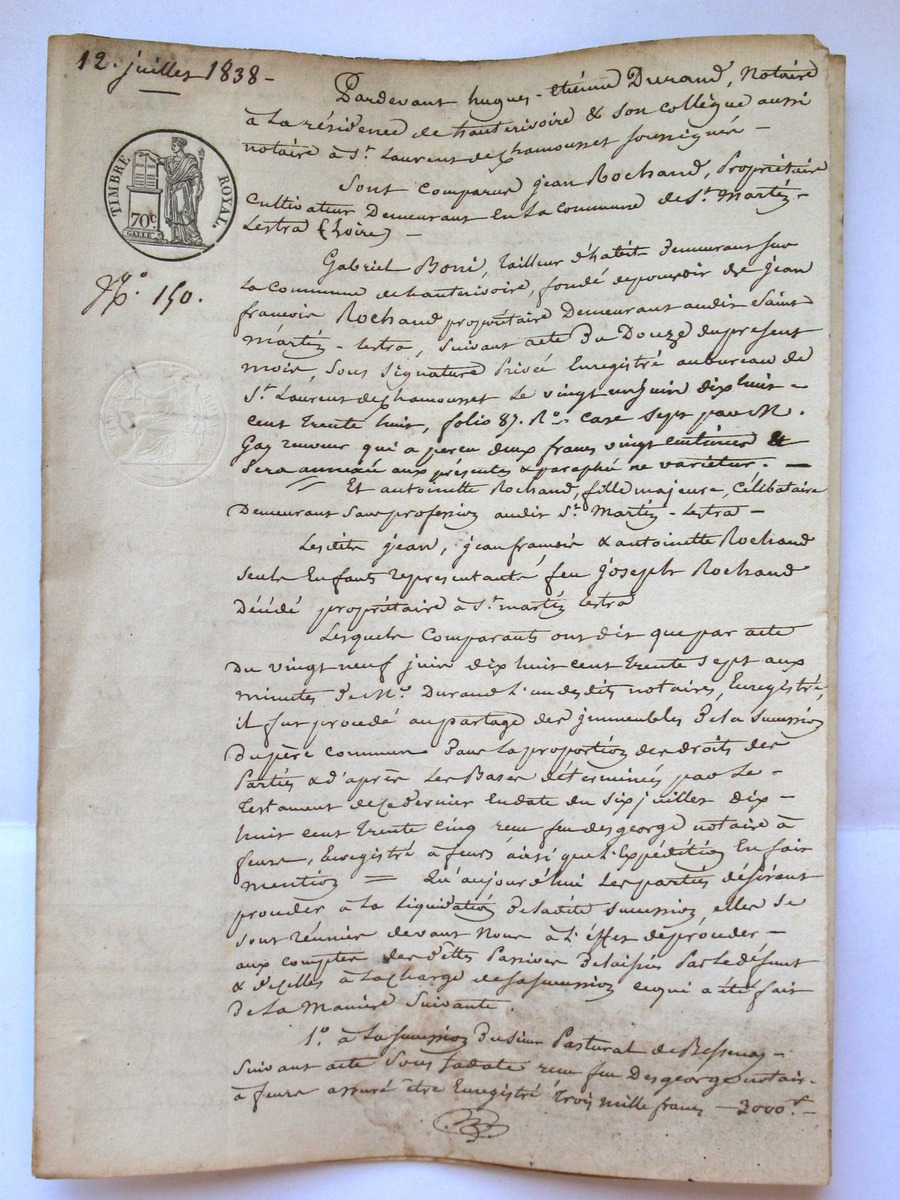 12. juillet 1838 -
Pardevant hugues - etiénne Durand, Notaire
à La résidence de hauterivoire & son collègue aussi
notaire à St. Laurent de Chamousset soussignés -
TIMBRE ROYAL.
70 c.
Sont comparus jean Rochand, Propriétaire
Cultivateur Demeurant En La Commune de St. Martin -
Lestra (Loire) -
Gabriel Boni, tailleur d'habit Demeurant sur
La Commune de hauterivoire, fondé de pouvoir de jean
150.
francois Rochand propriétaire Demeurant audit Saint
Martin - Lestra, Suivant acte du Douze du present
mois, Sous Signature Privée Enregistré au bureau de
St. Laurent de Chamousset Le vingt un juin dix huit -
cent trente huit, folio 87. Ro. case Sept par M.
Gay receveur qui a percu deux francs vingt centimes &
Sera annexé aux présentes & paraphé ne varietur. -
Et antoinette Rochand, fille majeure, Célibataire
Demeurant Sans profession audit St. Martin - Lestra -
Lesdits jean, jean francois & antoinette Rochand
seuls Enfants représentants feu joseph Rochand
Décédé propriétaire à St. martin Lestra
Lesquels Comparants ont dit que par acte
Du vingt neuf juin dix huit cent trente Sept aux
minutes de Me. Durand L'un desdits notaires, Enregistré,
il fut procédé au partage des immeubles De la succession
Du père commun Dans La proportion des droits des
Parties & d'après Les Bases déterminés par Le -
Testament de Ce dernier En date du Six juillet dix -
huit cent trente cinq recu feu desgeorge notaire à
feurs, Enregistré à feurs ainsi que L'Expédition En fait
mention = Qu'aujourd'hui Les parties désirant
procéder à La Liquidation De ladite succession, elles se
sont réunies devant Nous à L'éffet de procéder -
aux comptes des déttes Passives Delaissés Par Le défunt
& d'icelles à La charge de sa succession ce qui a été fait
De La Manière Suivante.
1o. à La succession Du sieur Pastural de Bessenay -
Suivant acte Sous Sa date recu feu Desgeorge notair.
à feurs assuré être Enregistré trois mille francs - 3000 f -